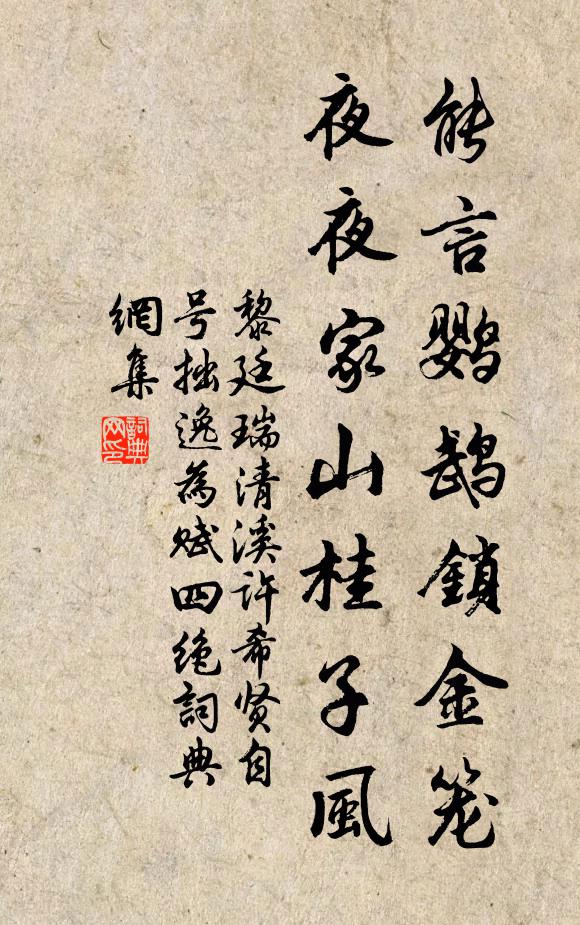 能言鹦鹉鎖金笼
夜夜家山桂子風
黎廷瑞清溪许希贤自
号拙逸為赋四绝詞典
網集
詞典
网印